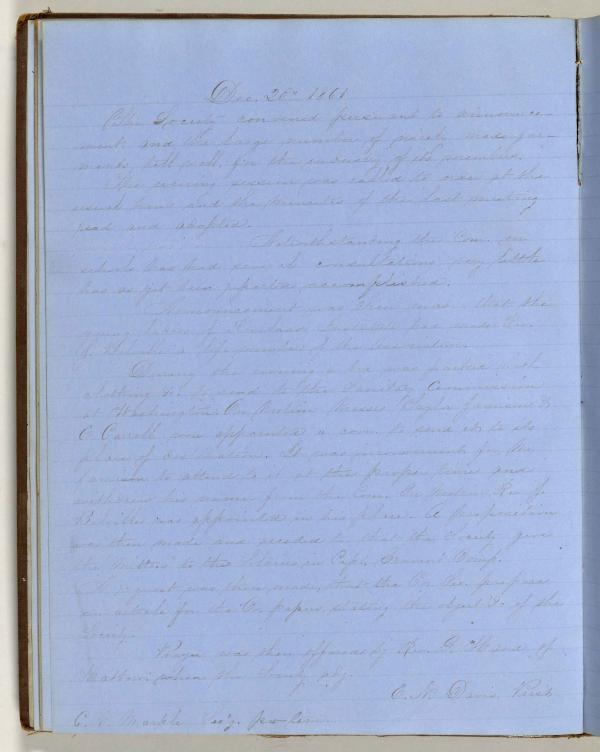 Dec. 20th 1861
The Society convened pursuant to announce-
ment, and the large number of neatly made gar-
ments tell well for the industry of the members.
The evening session was called to order at the
usual time and the Minutes of the last meeting
read and adopted.
Notwithstanding the Com. on
schools has had several consultations very little
has as yet been reported accomplished.
Announcement was then made that the
young ladies of Institute has made Rev.
a life member of the Association.
During the evening a box was packed with
clothing &c. to send to the Sanitary Commission
at Washington. On Motion Messrs. &
C. Carroll were appointed a com. to send it to its
place of destination. It was inconvenient for Mr.
to attend to it at the proper time and
withdrew his name from the Com. On Motion Rev. J.
was appointed in his place. A proposition
was then made and acceded to that the Society give
the to the in Capt. Comp.
A request was then made, that the prepare
an article for the Co. papers, stating the object &c. of the
Society.
Prayer was then offered by Rev. G. of
when the Society adj.
C. N. Davis. Prest
C. Markle Sec'y. pro tem.